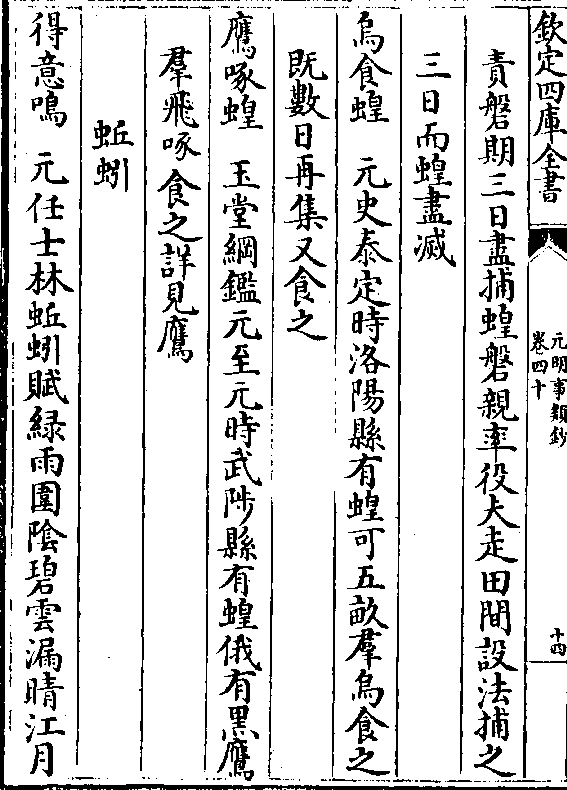 欽定四庫全書
元明事類鈔
卷四十
十四
責磐期三日盡捕蝗磐親率役夫走田間設法捕之
三日而蝗盡滅
烏食蝗 元史泰定時洛陽縣有蝗可五畝羣烏食之
既數日再集又食之
鷹啄蝗 玉堂綱鑑元至元時武陟縣有蝗俄有黑鷹
羣飛啄食之詳見鷹
蚯蚓
得意鳴 元任士林蚯蚓賦緑雨圍陰碧雲漏晴江月